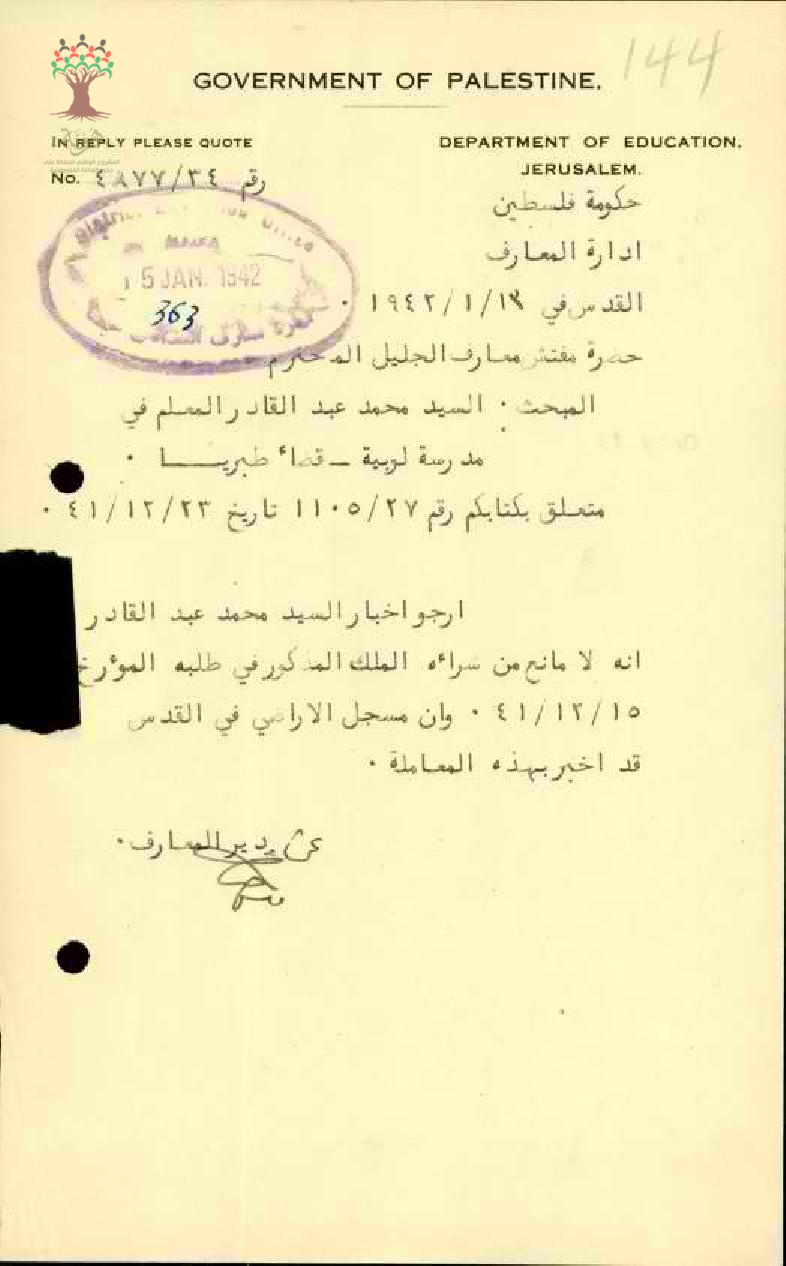 144
GOVERNMENT OF PALESTINE.
IN REPLY PLEASE QUOTE
DEPARTMENT OF EDUCATION,
JERUSALEM.
No. رقم ٤٨٧٧/٣٤
حكومة فلسطين
ادارة المعارف
15 JAN. 1942
363
القدس في ١٩٤٢/١/
حضرة مفتش معارف الجليل المحترم
المبحث · السيد محمد عبد القادر المعلم في
مدرسة لوبية ــ قضاء طبريــا ·
متعلق بكتابكم رقم ١١٠٥/٢٧ تاريخ ٤١/١٢/٢٣ ·
ارجو اخبار السيد محمد عبد القادر
انه لا مانع من شرائه الملك المذكور في طلبه المؤرخ
٤١/١٢/١٥ · وان مسجل الاراضي في القدس
قد اخبر بهذه المعاملة ·
عن مدير المعارف·